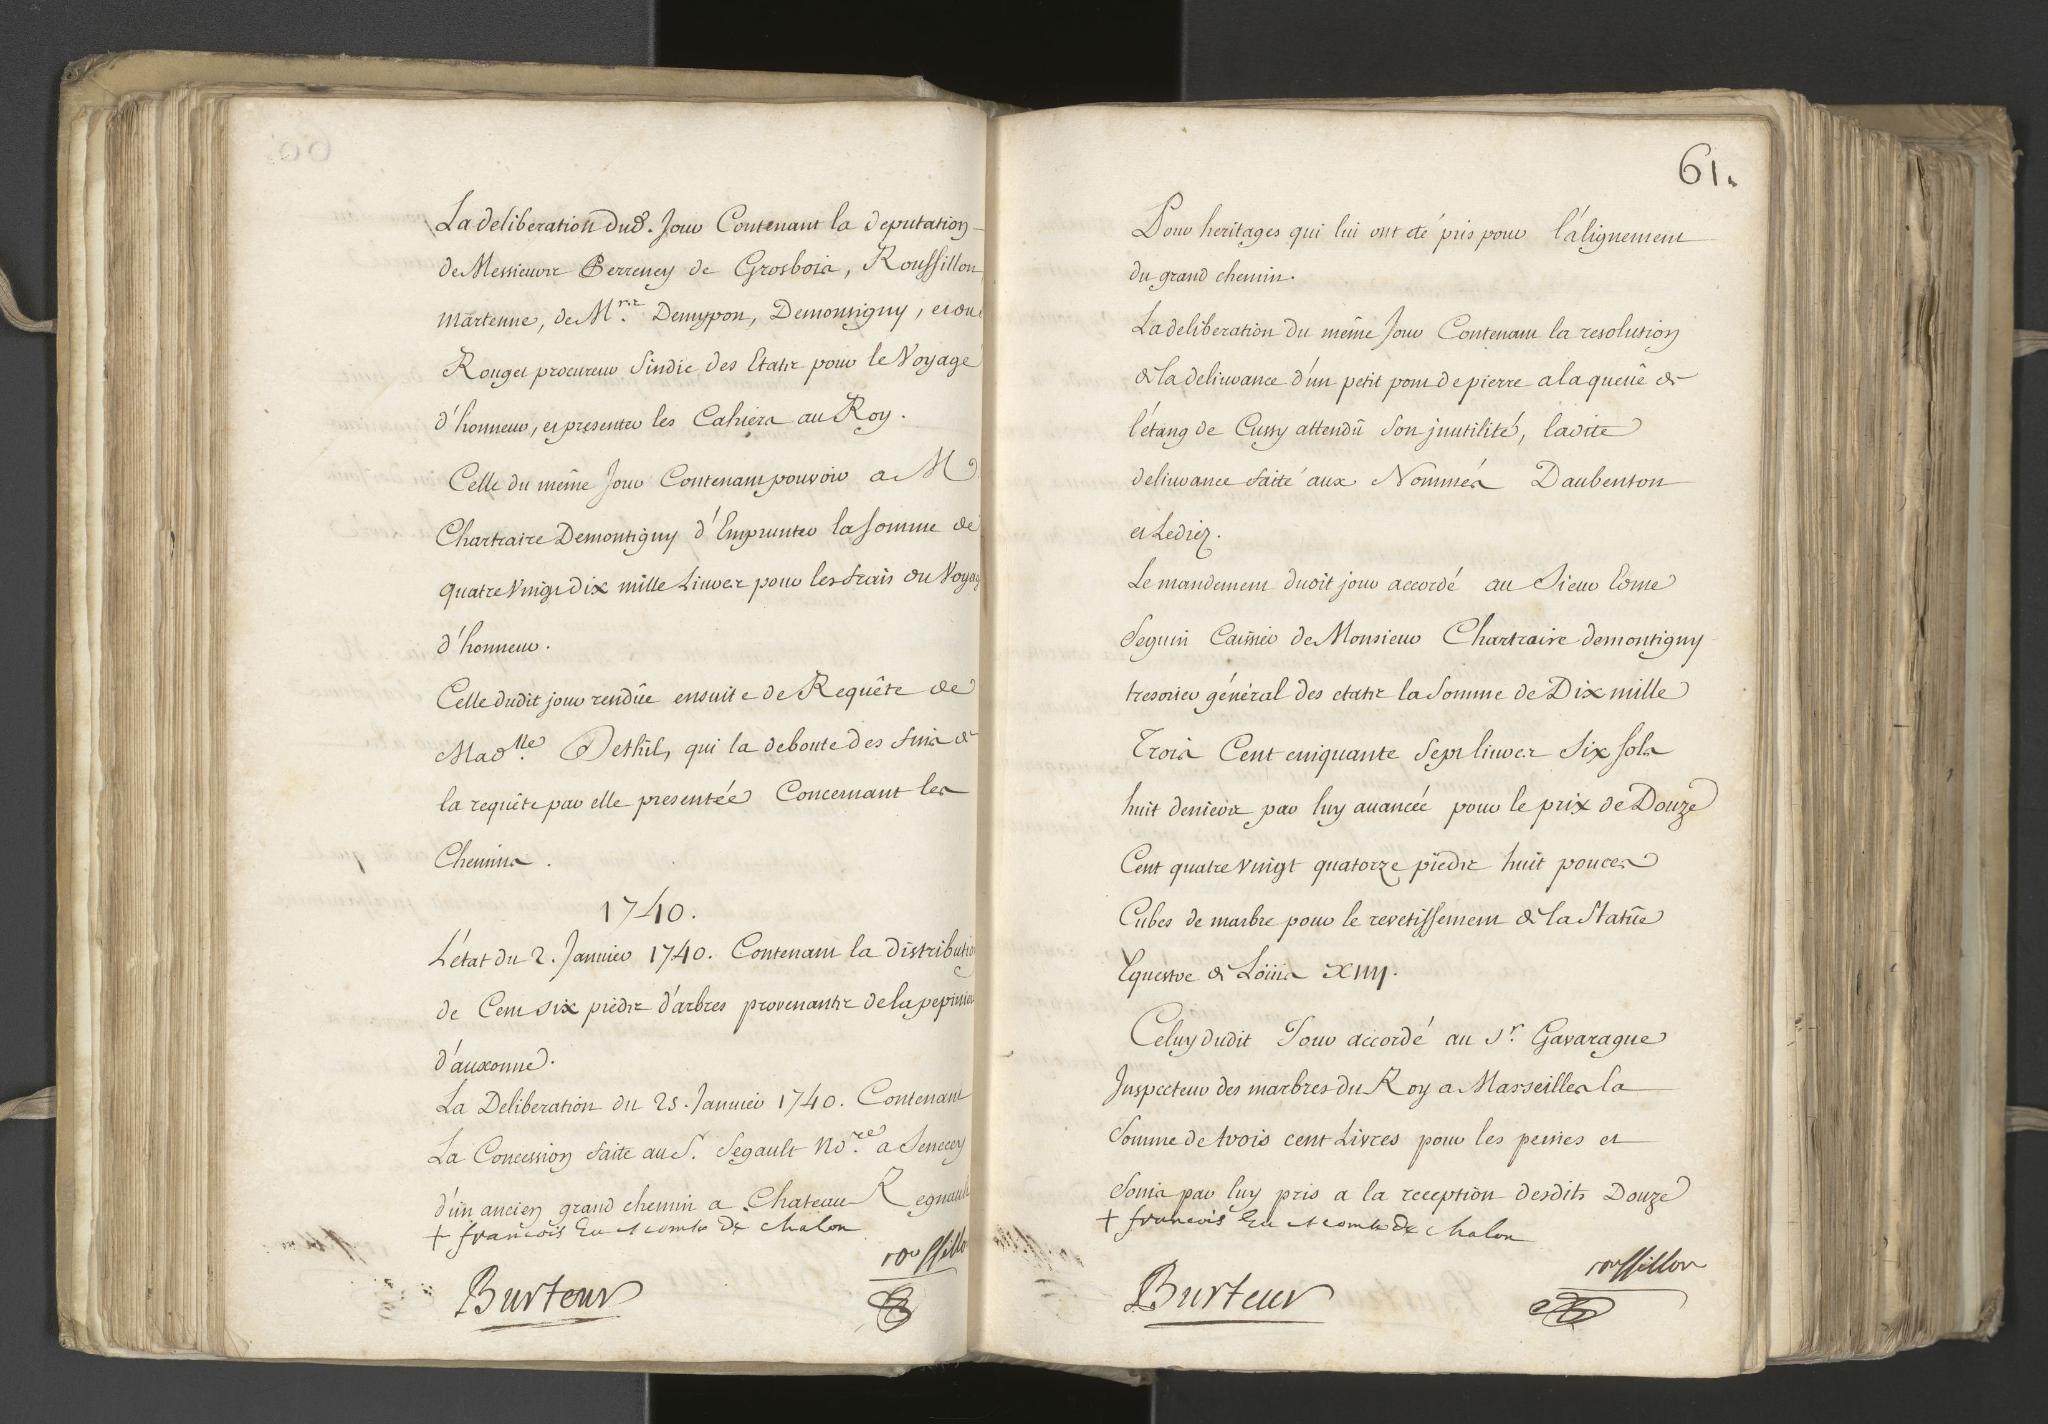 La deliberation dud. Jour Contenant la deputation
de Messieurs Perreney de Grosbois, Roussillon,
martenne, de Mrs. Demypon, Demontigny, et du
Rouget procureur Sindic des Etats pour le Voyage
d'honneur, et presenter les Cahiers au Roy.
Celle du même Jour Contenant pouvoir a M
Chartraire Demontigny d'Emprunter la somme de
quatre Vingt dix mille Livres pour les frais du Voyag
d'honneur.
Celle dudit jour rendüe ensuite de Requête de
Madlle. Dethil, qui la deboute des fins de
la requête par elle presentée Concernant les
Chemins.
1740.
L'état du 2. Janvier 1740. Contenant la distributio
de Cent six pieds d'arbres provenants de la pepinier
d'auxonne.
La Deliberation du 25. Janvier 1740. Contenant
La Concession faite au S. Segault Nore. a Senecey
d'un ancien grand chemin a Chateau Regnault
+ francois Eu et comte de chalon
roussillon
Burteur
61.
Pour heritages qui lui ont eté pris pour l'alignement
du grand chemin.
La deliberation du même Jour Contenant la resolution
de la delivrance d'un petit pont de pierre a la queüe de
l'étang de Cussy attendû son jnutilité, ladite
delivrance faite aux Nommés Daubenton
et Ledriez.
Le mandement dudit jour accordé au Sieur Edme
Seguin Caissier de Monsieur Chartraire demontigny
tresorier général des etats la somme de Dix mille
Trois Cent cinquante Sept livres Six sols
huit deniers par luy avancée pour le prix de Douze
Cent quatre vingt quatorze pieds huit pouces
Cubes de marbre pour le revetissement de la Statüe
Equestre de Loüis XIIII.
Celuy dudit Jour accordé au Sr. Gavarague
Inspecteur des marbres du Roy a Marseilles la
Somme de trois cent Livres pour les peines et
Soins par luy pris a la reception desdits Douze
+ francois Eu et comte de chalon
roussillon
Burteur